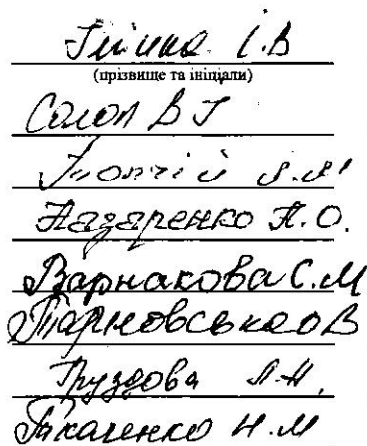 І.В
(прізвище та ініціали)
Сокол В Г
Назаренко
Варнакова С.М
Тарновська О В
Груздова Л.Н.
Ткаченко Н.М